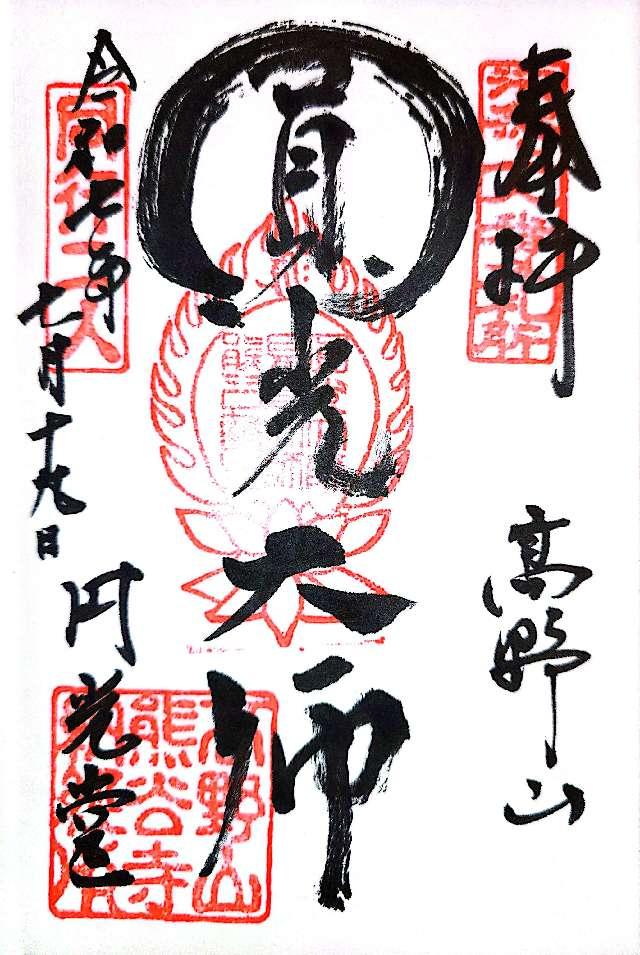 奉拝
高野山
圓光大師
令和七年
七月十九日
円光堂
同行二人
高野山
熊谷寺